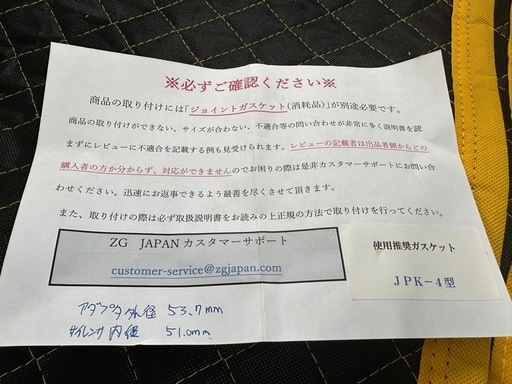 ※必ずご確認ください※
商品の取り付けには「ジョイントガスケット(消耗品)」が別途必要です。
商品の取り付けができない、サイズが合わない、不適合等の問い合わせが非常に多く説明書を読
まずにレビューに不適合を記載する例も見受けられます。レビューの記載者は出品者側からどの
購入者の方か分からず、対応ができませんのでお困りの際は是非カスタマーサポートにお問い合
わせください。迅速にお返事できるよう最善を尽くさせて頂きます。
また、取り付けの際は必ず取扱説明書をお読みの上正規の方法で取り付けを行ってください。
ZG JAPANカスタマーサポート
customer-service@zgjapan.com
使用推奨ガスケット
JPK-4型
アダプタ外径 53.7mm
サイレンサ内径 51.0mm